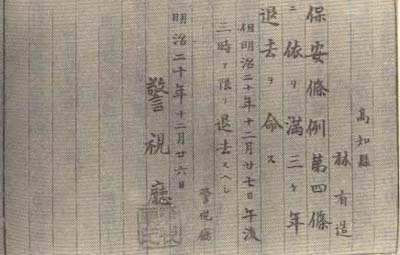 高知縣
林有造
保安條例第四條
ニ依リ満三ヶ年
退去ヲ命ス
但明治二十年十二月廿七日午後
三時ヲ限リ退去スヘシ
警視廳
明治二十年十二月廿六日
警視廳